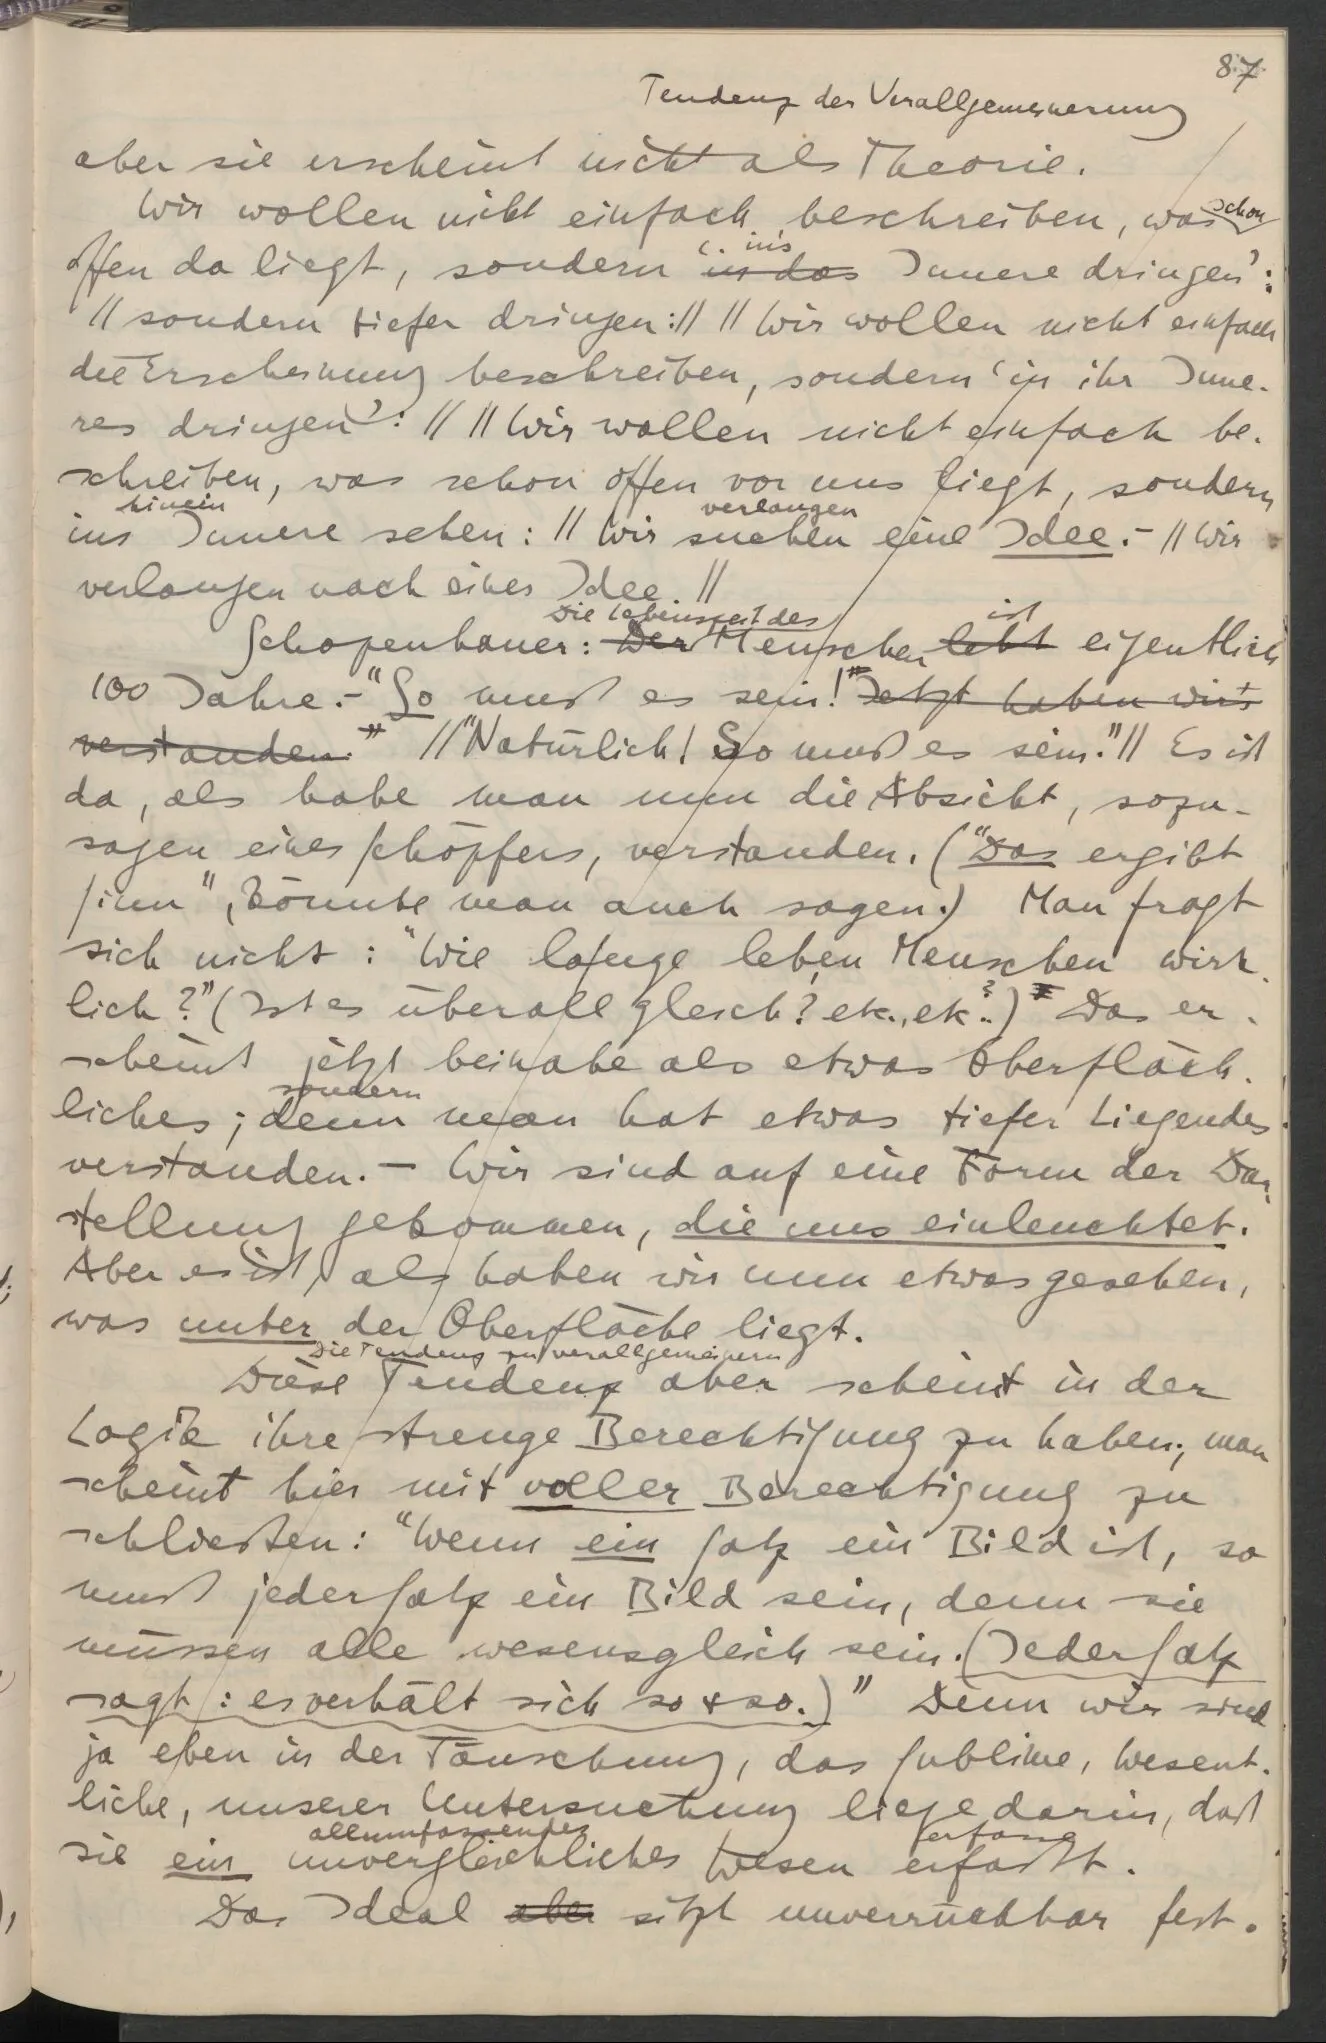 87
Tendenz der Verallgemeinerung
aber sie erscheint nicht als Theorie.
Wir wollen nicht einfach beschreiben, was schon
offen da liegt, sondern in das ‘ins Innere dringen’:
// sondern tiefer dringen: // // Wir wollen nicht einfach
die Erscheinung beschreiben, sondern ‘in ihr Inne-
res dringen’: // // Wir wollen nicht einfach be-
schreiben, was schon offen vor uns liegt, sondern
hinein verlangen
ins Innere sehen: // Wir suchen eine Idee. – // Wir
verlangen nach einer Idee. //
Die Lebenszeit des ist
Schopenhauer: Der Menschen lebt eigentlich
100 Jahre. – “So muß es sein!” Jetzt haben wir's
verstanden.” // “Natürlich! So muß es sein.” // Es ist
da, als habe man nun die Absicht, sozu-
sagen eines Schöpfers, verstanden. (“Das ergibt
Sinn”, könnte man auch sagen.) Man fragt
sich nicht: “Wie lange leben Menschen wirk-
lich?” (Ist es überall gleich? etc., etc.?) Das er-
scheint jetzt beinahe als etwas Oberfläch-
sondern
liches; denn man hat etwas tiefer Liegendes
verstanden. – Wir sind auf eine Form der Dar-
stellung gekommen, die uns einleuchtet.
Aber es ist, als haben wir nun etwas gesehen,
was unter der Oberfläche liegt.
Die Tendenz zu verallgemeinern
Diese Tendenz aber scheint in der
Logik ihre strenge Berechtigung zu haben; man
scheint hier mit voller Berechtigung zu
schließen: “Wenn ein Satz ein Bild ist, so
muß jeder Satz ein Bild sein, denn sie
müssen alle wesensgleich sein. (Jeder Satz
sagt: es verhält sich so & so.)” Denn wir sind
ja eben in der Täuschung, das Sublime, Wesent-
liche, unserer Untersuchung liege darin, daß
allumfassendes erfasse
sie ein unvergleichliches Wesen erfaßt.
Das Ideal aber sitzt unverrückbar fest.